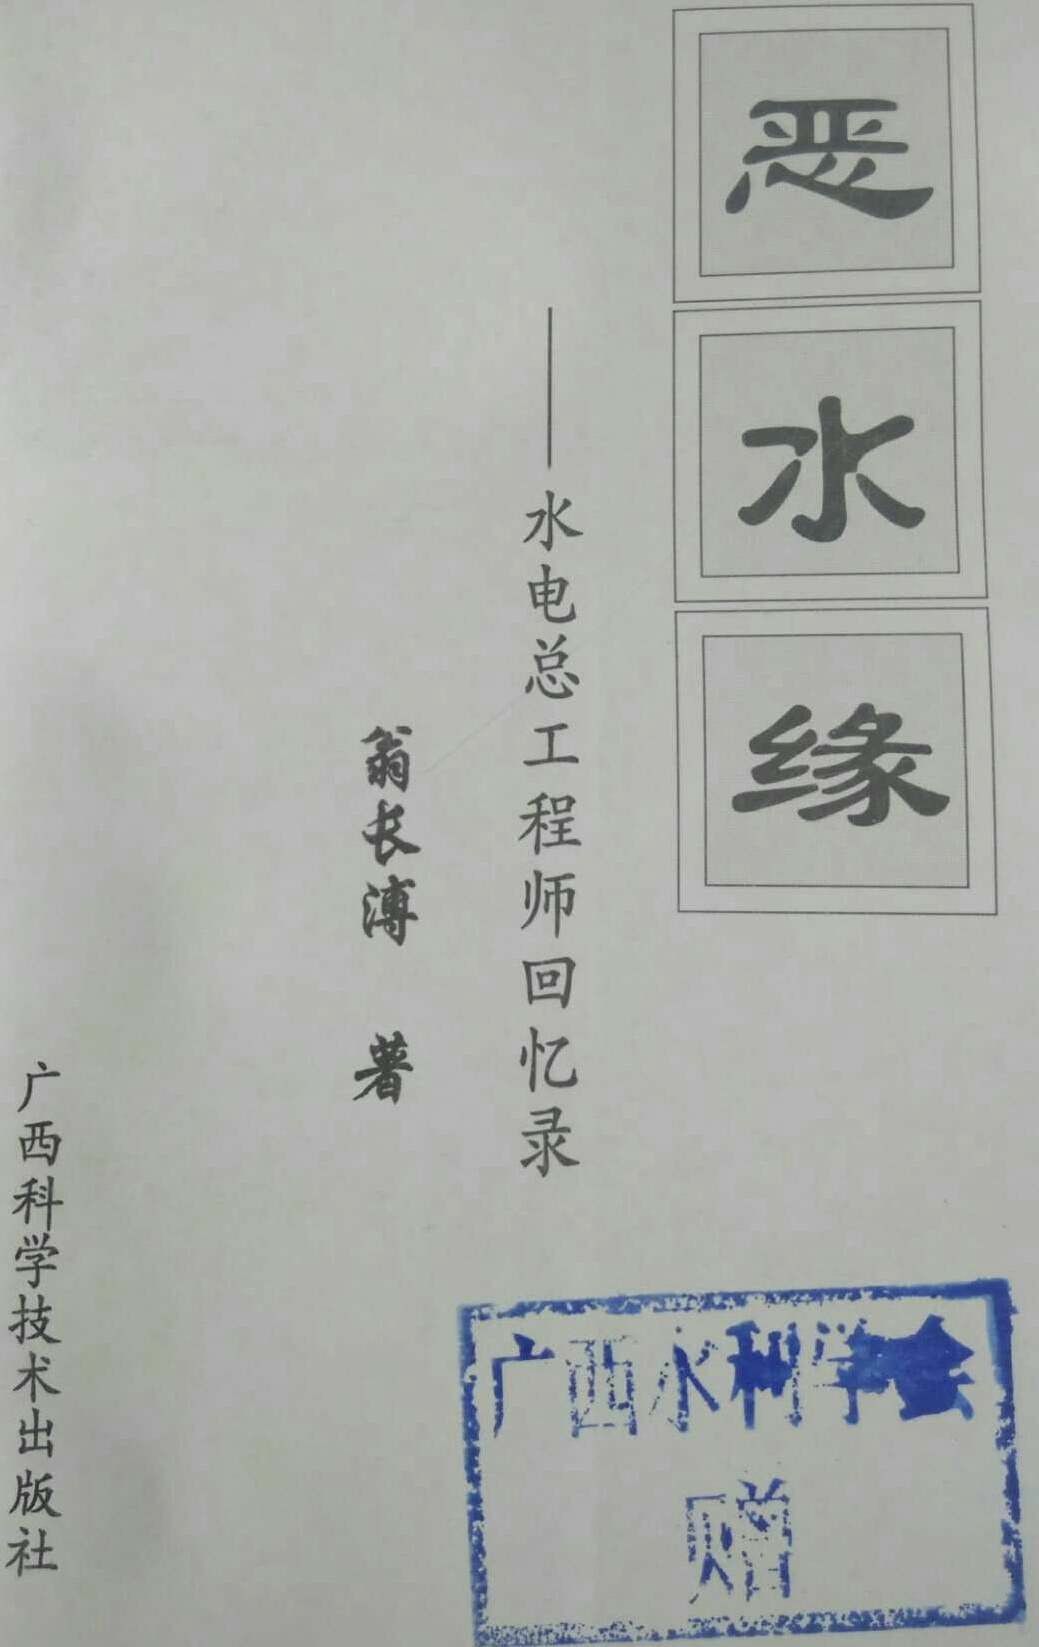 恶水缘
——水电总工程师回忆录
翁长溥 著
广西科学技术出版社
广西水利学会
赠